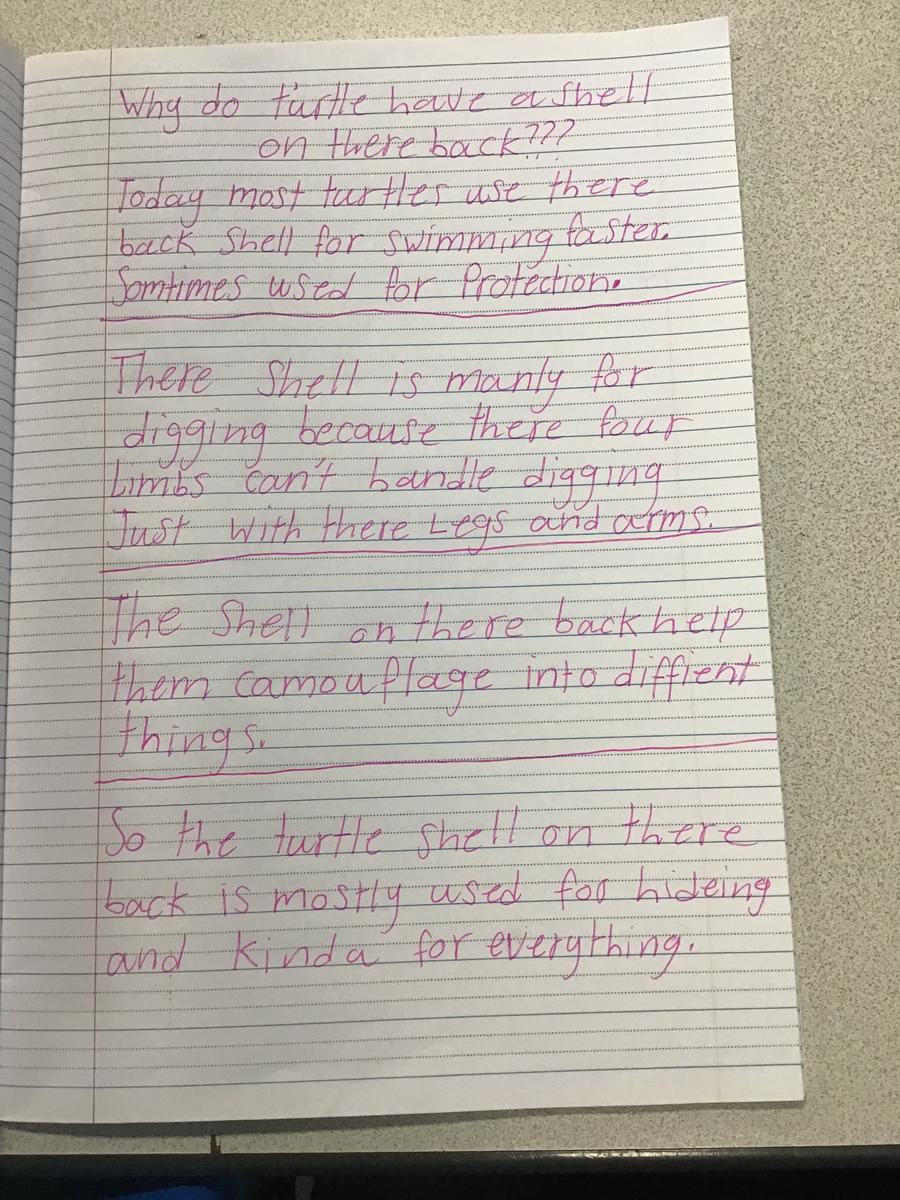 Why do turtle have a shell
on there back???
Today most turtles use there
back shell for swimming faster.
Somtimes used for Protection.
There Shell is manly for
digging because there four
Limbs can't handle digging
Just with there Legs and arms.
The Shell on there back help
them camouflage into diffient
things.
So the turtle shell on there
back is mostly used for hideing
and kinda for everything.